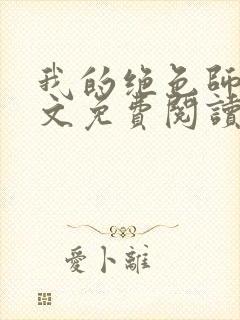 我的绝色師
文免費閱讀
愛卜離